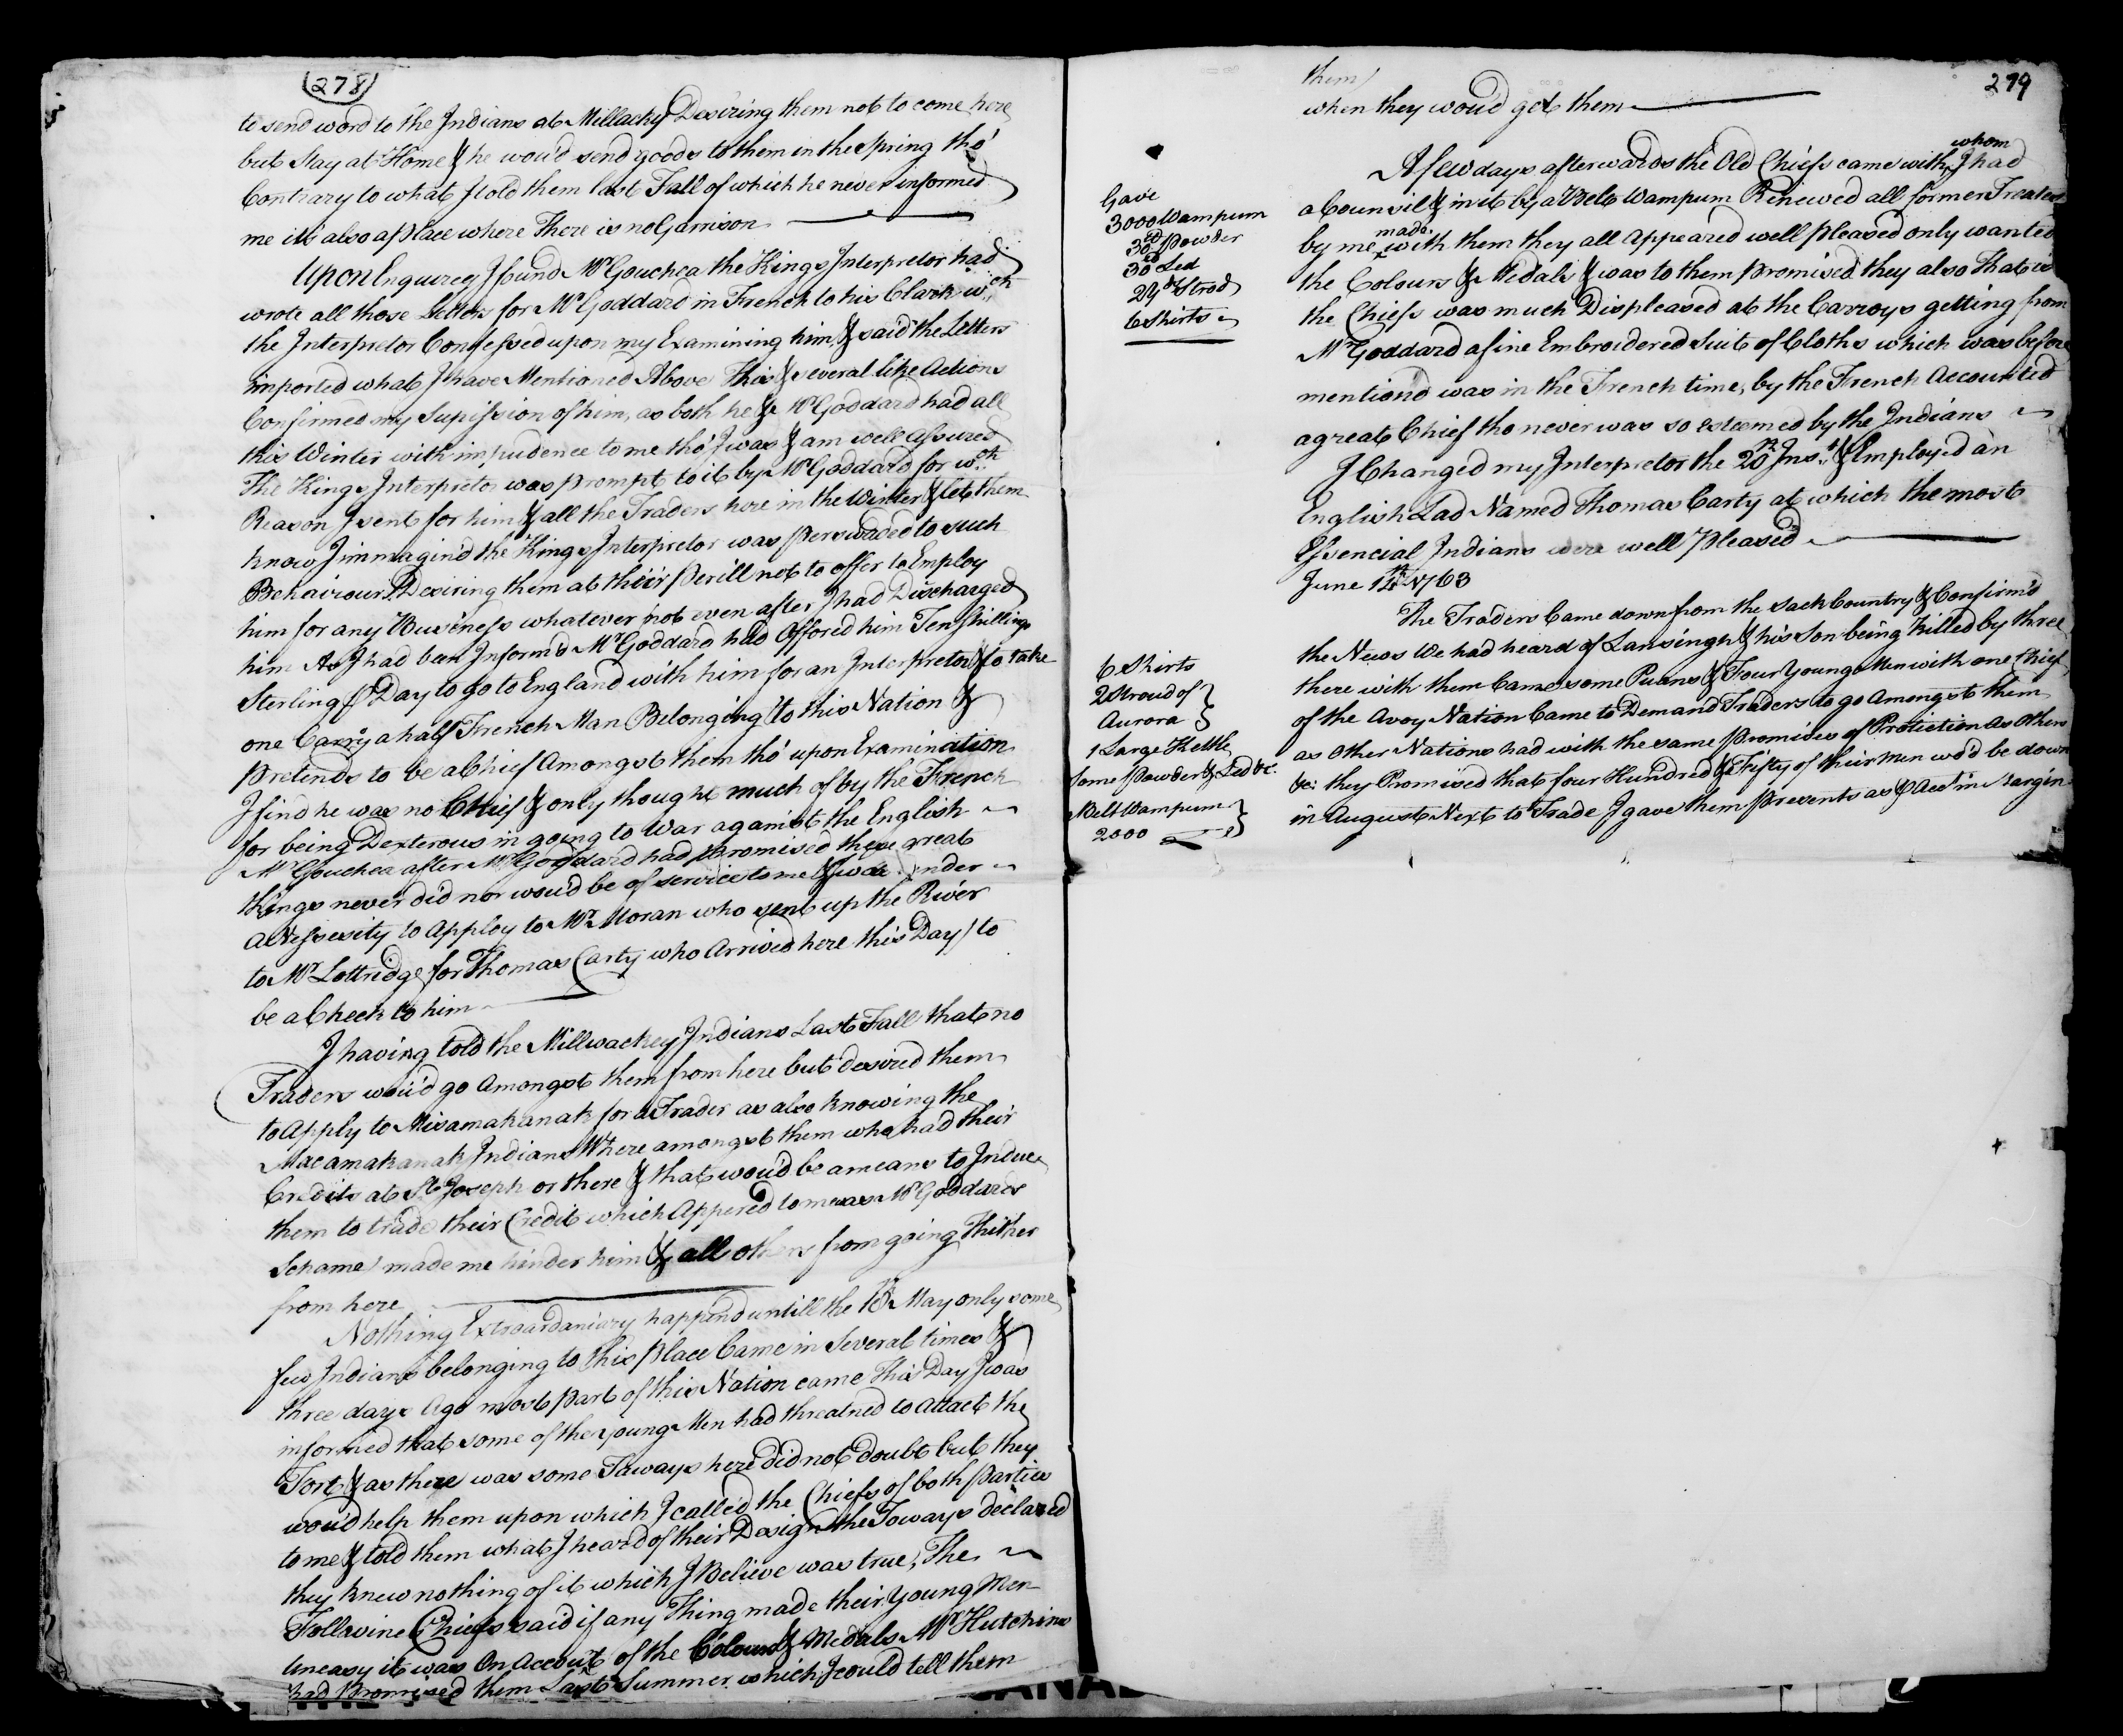 278
to send word to the Indians at Millacky Desiring them not to come here
but Stay at Home & he wou'd send goods to them in the Spring tho'
Contrary to what I told them last Fall of which he never informed
me its also a place where There is no Garrison
Upon Enquirey I found Mr Gouchea the Kings Interpretor had
wrote all those Letters for Mr Goddard in French to his Clark wch
the Interpretor Confessed upon my Examining him, & said the Letters
imported what I have Mentioned Above This & several like Actions
Confirmed my Supission of him, as both he & Mr Goddard had all
this Winter with impudence to me tho' I was & am well Assured
The Kings Interpretor was prompt to it by Mr Goddard for wch
Reason I sent for him & all the Traders here in the Winter & let them
know I immagin'd the Kings Interpretor was perswaded to such
Behaviour Desiring them at their perill not to offer to Employ
him for any Business whatever not even after I had Discharged
him As I had been Inform'd Mr Goddard had Offored him Ten shillings
Sterling p Day to go to England with him for an Interpretor & to take
one Carry a half French Man Belonging to this Nation &
pretends to be a Chief Amongst them tho' upon Examination
I find he was no Chief & only thought much of by the French
for being Dexterous in going to War against the English
Mr Gouchea after Mr Goddard had Promised these great
things never did nor wou'd be of service to me & was under
a Nessesity to Apploy to Mr Moran who sent up the River
to Mr Lottridge for Thomas Carty who Arrived here this Day to
be a Check to him
I having told the Millwackey Indians Last Fall that no
Traders wou'd go Amongst them from here but desired them
to Apply to Misamakanak for a Trader as also knowing the
Macamakanak Indians Where amongst them who had their
Credits at St Joseph or there & that wou'd be a means to Induce
them to trade their Credit which Appered to me was Mr Goddards
Schame made me hinder him & all others from going Thither
from here
Nothing Extroardaniary happend untill the 18th May only some
few Indians belonging to this place Came in Several times &
three days Ago most part of this Nation came This Day I was
informed that some of the young Men had threatned to attact the
Fort & as there was some Taways here did not doubt but they
wou'd help them upon which I called the Chiefs of both parties
to me & told them what I heard of their Design the Toways declared
they knew nothing of it which I Believe was true, The
Follsvine Chiefs said if any Thing made their young Men
Uneasy it was On Account of the Colours & Medals Mr Hutchins
had Promised them Last Summer which I could tell them
279
them
when they wou'd get them
whom
A few days afterwards the Old Chiefs came with I had
a Counsil & in it by a Belt Wampum Renewed all former Treates
made
by me with them they all Appeared well pleased only wanted
the Colours & Medals & was to them promised they also That is
the Chiefs was much Displeased at the Carroys getting from
Mr Goddard a fine Embroidered Suit of Cloths which was before
mention'd was in the French time, by the French Accounted
a great Chief tho never was so esteemed by the Indians
Gave
3000 Wampum
30 lb Powder
30 lb Led
2 Strod
6 Shirts
I Changed my Interpretor the 20th Inst & Employed an
English Lad Named Thomas Carty at which the most
Essencial Indians were well Pleased
June 14th 1763
The Traders Came down from the Sack Country & Confirm'd
the News We had heard of Lansingh & his Son being Killed by three
there with them Came some Puans & Four Young Men with one Chief
of the Avoy Nation Came to Demand Traders to go Amongst them
as Other Nations had with the same Promises of Protiction as Others
&c: they Promised that four Hundred & Fifty of their Men wo'd be down
in August Next to Trade I gave them Presents as p Acct in Margin
6 Shirts
2 Stroud of
Aurora
1 Large Kettle
Some Powder & Led &c:
Belt Wampum
2000